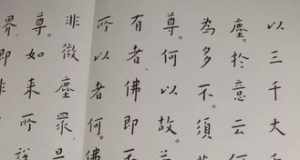 以三千大
塵。於意云
為多不。須
尊。何以故。
有者。佛即不
所以者何。佛
非微塵眾。是
尊。如來所說
界。即非